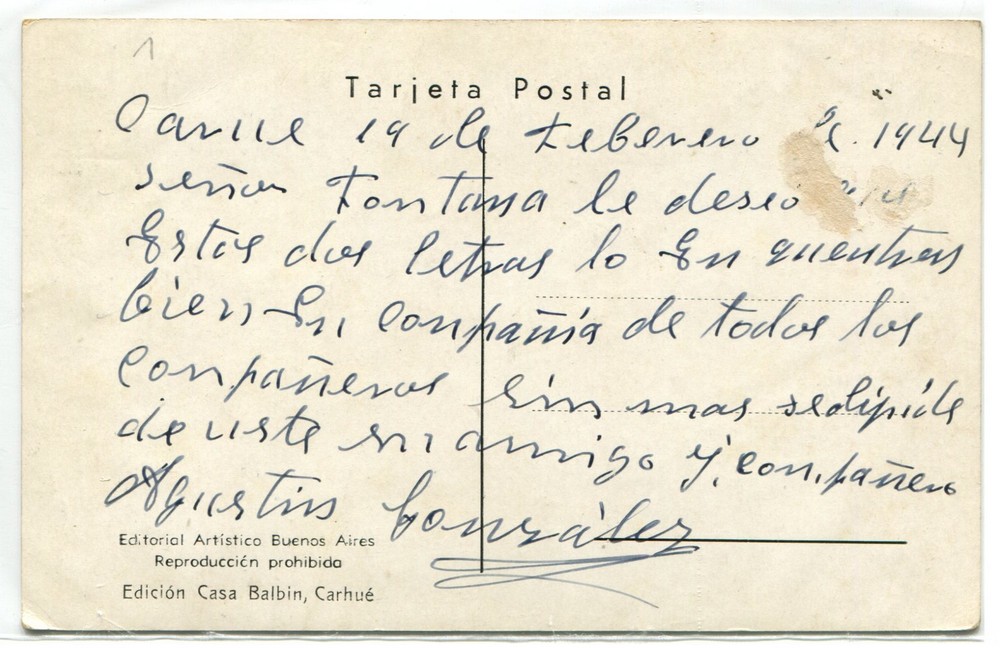 1
Tarjeta Postal
Carue 19 de Feberero de 1944
señor Fontana le deseo que
Estas dos letras lo En quentren
bien En Conpañia de todos los
Conpañeros Sin mas sedipide
de uste su amigo y, conpañero
Agustin González
Editorial Artístico Buenos Aires
Reproducción prohibida
Edición Casa Balbin, Carhué